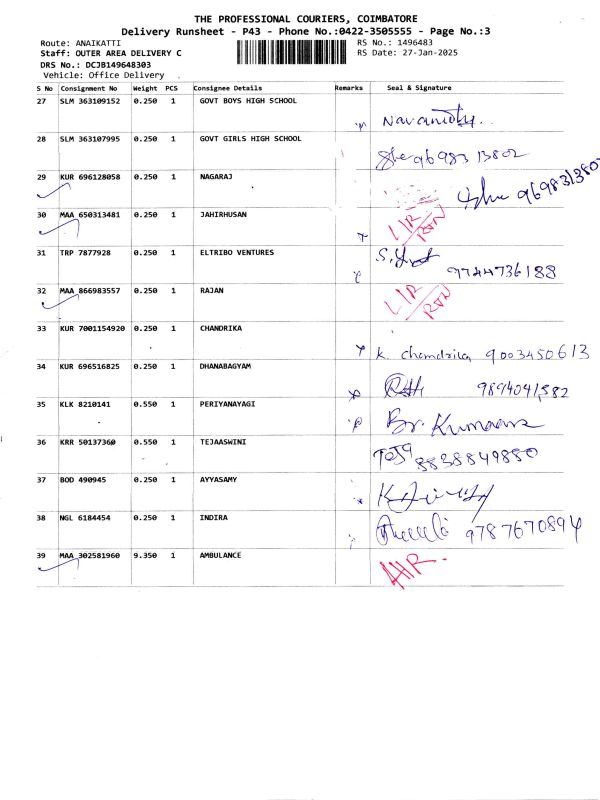 THE PROFESSIONAL COURIERS, COIMBATORE
Delivery Runsheet - P43 - Phone No.:0422-3505555 - Page No.:3
Route: ANAIKATTI
RS No.: 1496483
Staff: OUTER AREA DELIVERY C
RS Date: 27-Jan-2025
DRS No.: DCJB149648303
Vehicle: Office Delivery
S No Consignment No Weight PCS Consignee Details Remarks Seal & Signature
27 SLM 363109152 0.250 1 GOVT BOYS HIGH SCHOOL
28 SLM 363107995 0.250 1 GOVT GIRLS HIGH SCHOOL
9698313802
29 KUR 696128058 0.250 1 NAGARAJ
30 MAA 650313481 0.250 1 JAHIRHUSAN
31 TRP 7877928 0.250 1 ELTRIBO VENTURES
9744736188
32 MAA 866983557 0.250 1 RAJAN
33 KUR 7001154920 0.250 1 CHANDRIKA
K. Chandrika 9003450613
34 KUR 696516825 0.250 1 DHANABAGYAM
9894041382
35 KLK 8210141 0.550 1 PERIYANAYAGI
36 KRR 50137360 0.550 1 TEJAASWINI
8838849880
37 BOD 490945 0.250 1 AYYASAMY
38 NGL 6184454 0.250 1 INDIRA
9787670894
39 MAA 302581960 9.350 1 AMBULANCE